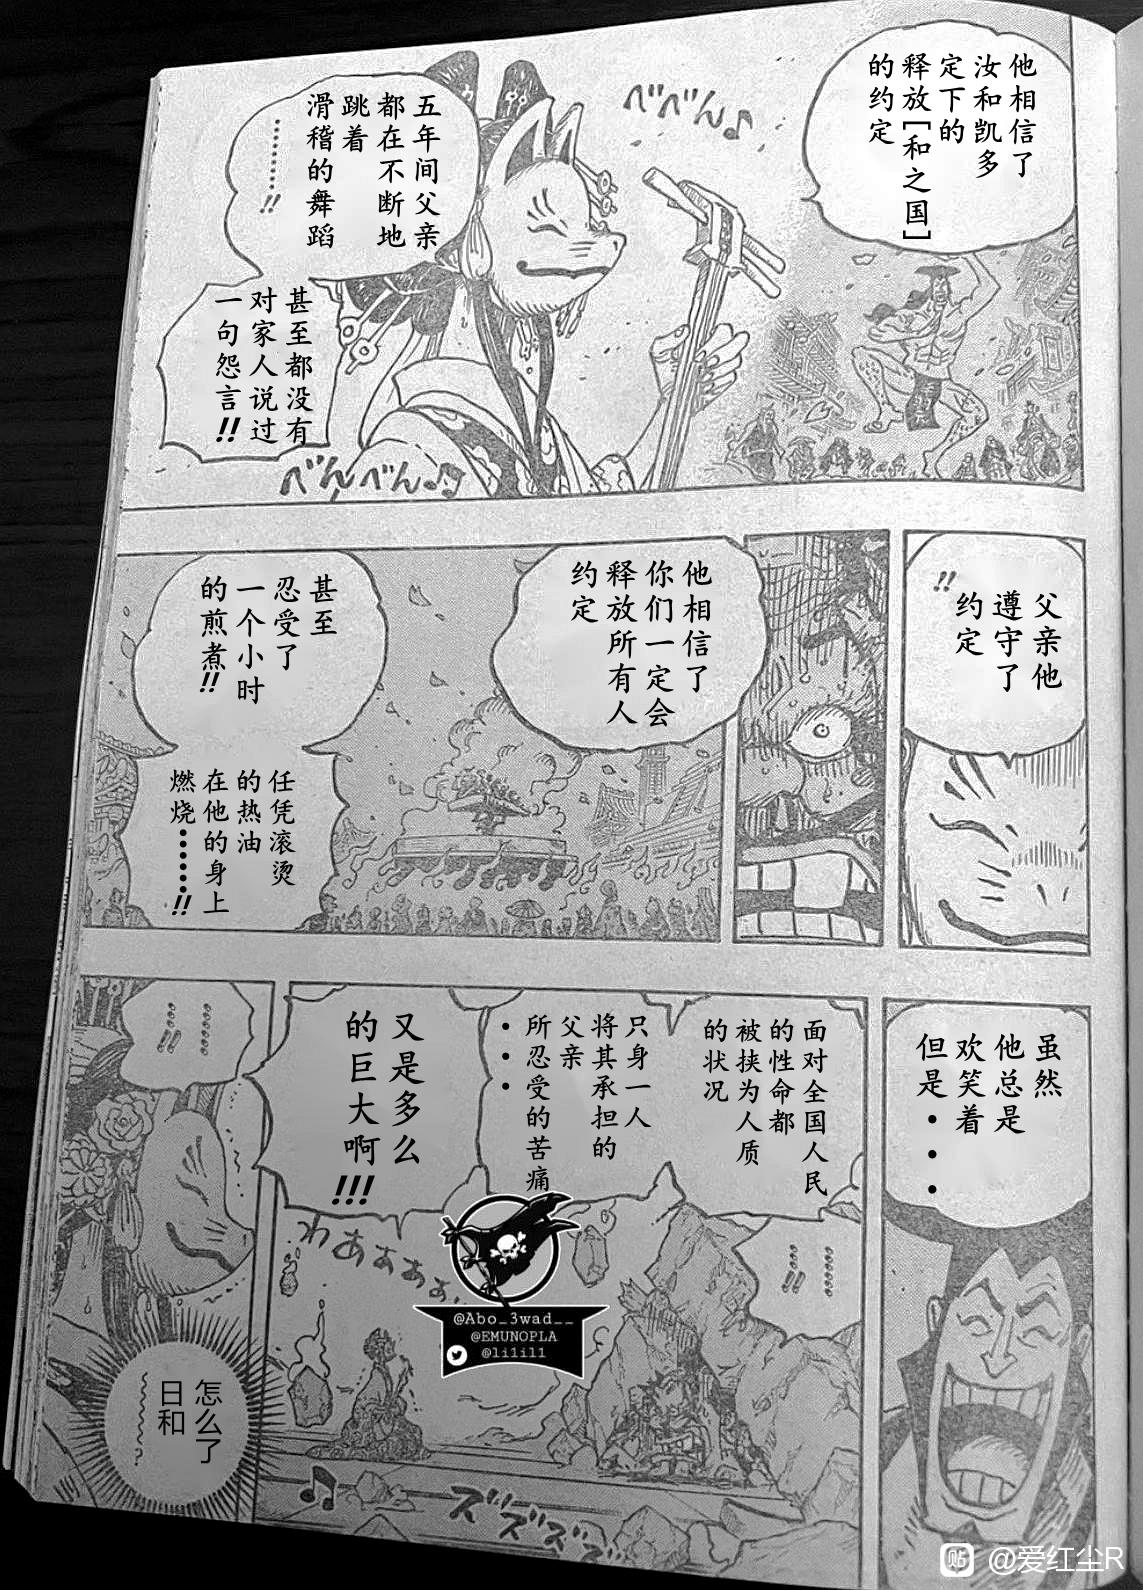 他相信了
汝和凯多
定下的
释放[和之国]
的约定
べべん♪
五年间父亲
都在不断地
跳着
滑稽的舞蹈
………!!
甚至都没有
对家人说过
一句怨言!!
べんべん♪♪
父亲他
遵守了
约定
!!
他相信了
你们一定会
释放所有人
约定
甚至
忍受了
一个小时
的煎煮!!
任凭滚烫
的热油
在他的身上
燃烧……!!
虽然
他总是
欢笑着
但是・・・
面对全国人民
的性命都
被挟为人质
的状况
只身一人
将其承担的
父亲
所忍受的苦痛
・・・
又是多么
的巨大啊!!!
……!!
……!!
……!!
……!!
わぁぁぁぁ
ズズズズ
♪
怎么了
日和
@Abo_3wad__
@EMUNOPLA
@li1il1
贴 @爱红尘R